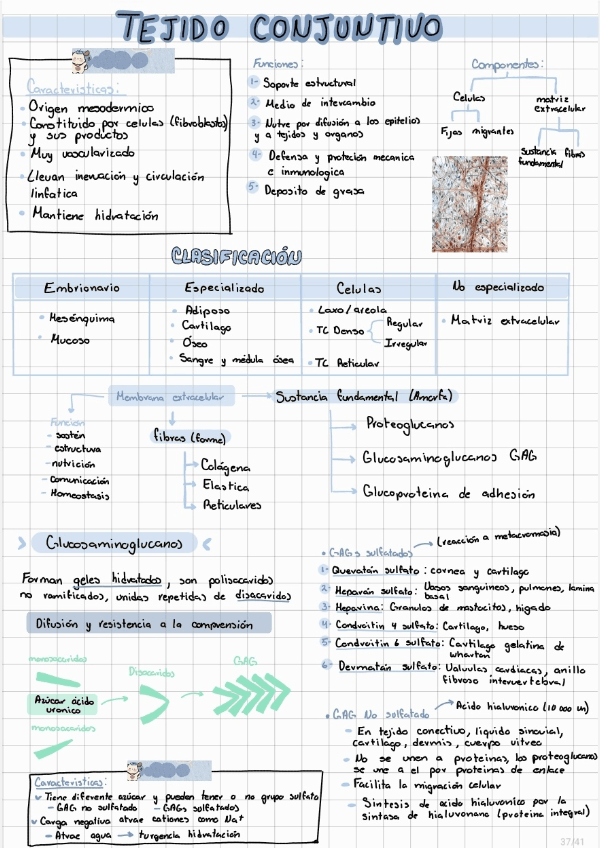 TEJIDO CONJUNTIVO
Características:
• Origen mesodermico
• Constituido por celulas (fibroblastos)
y sus productos
• Muy vascularizado
• Llevan inervación y circulación
linfatica
• Mantiene hidratación
Funciones:
1- Soporte estructural
2- Medio de intercambio
3- Nutre por difusión a los epitelios
y a tejidos y organos
4- Defensa y proteción mecanica
e inmunologica
5- Deposito de grasa
Componentes:
Celulas
matriz
extracelular
Fijas migrantes
Sustancia fibras
fundamental
CLASIFICACIÓN
Embrionario Especializado Celulas No especializado
• Mesénquima
• Mucoso
• Adiposo
• Cartilago
• Óseo
• Sangre y médula ósea
• Laxo/areola
• TC Denso Regular
Irregular
• TC Reticular
• Matriz extracelular
Membrana extracelular
Sustancia fundamental (Amorfa)
Funcion
- sostén
- estructura
- nutrición
- comunicación
- Homeostasis
fibras (forme)
Colágena
Elastica
Reticulares
Proteoglucanos
Glucosaminoglucanos GAG
Glucoproteina de adhesión
Glucosaminoglucanos
Forman geles hidratados, son polisacaridos
no ramificados, unidas repetidas de disacaridos
Difusión y resistencia a la comprensión
monosacaridos
Disacaridos
GAG
Azúcar ácido
uronico
monosacaridos
Caracteristicas:
Tiene diferente azúcar y pueden tener o no grupo sulfato
- GAG no sulfatado - GAGs sulfatados
Carga negativa atrae cationes como Na+
- Atrae agua → turgencia hidratación
• GAGs sulfatados (reacción a metacromasia)
1- Queratán sulfato: cornea y cartilago
2- Heparán sulfato: Vasos sanguineos, pulmones, lamina
basal
3- Heparina: Granulos de mastocitos, higado
4- Condroitin 4 sulfato: Cartilago, hueso
5- Condroitin 6 sulfato: Cartilago gelatina de
wharton
6- Dermatán sulfato: Valvulas cardiacas, anillo
fibroso intervertebral
• GAG No sulfatado Acido hialuronico (10 000 un)
- En tejido conectivo, liquido sinovial,
cartilago, dermis, cuerpo vitreo
- No se unen a proteinas, los proteoglucanos
se une a el por proteinas de enlace
- Facilita la migración celular
- Sintesis de acido hialuronico por la
sintasa de hialuronano (proteina integral)
37/41